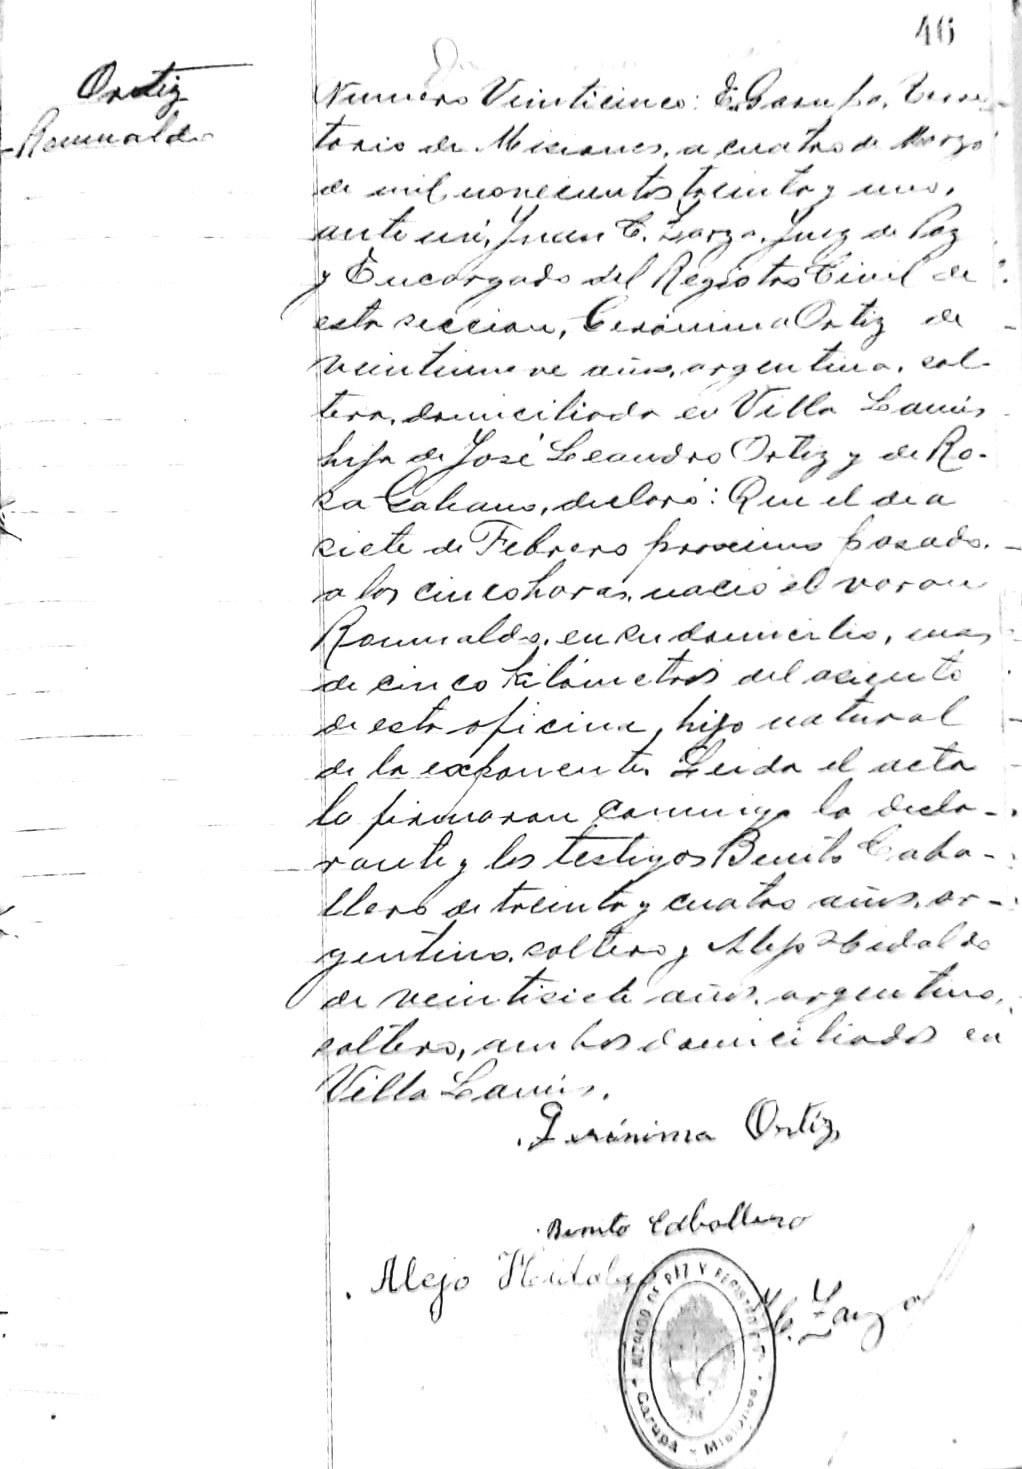 46
Ortiz
Romualdo
Numero Veinticinco: En Garupa, Terri-
torio de Misiones, a cuatro de Marzo
de mil novecientos treinta y uno,
ante mi, Juan C. Zarza, Juez de Paz
y Encargado del Registro Civil de
esta seccion, Gerónima Ortiz de
veintinueve años, argentina, sol-
tera, domiciliada en Villa Lanús
hija de José Leandro Ortiz y de Ro-
sa Galeano, declaró: Que el dia
siete de Febrero proximo pasado,
a las cinco horas, nació el varon
Romualdo, en su domicilio, mas
de cinco kilómetros del asiento
de esta oficina, hijo natural
de la exponente. Leida el acta
la firmaron conmigo la decla-
rante y los testigos Benito Caba-
llero de treinta y cuatro años, ar-
gentino, soltero y Alejo Hidaldo
de veintisiete años, argentino,
soltero, ambos domiciliados en
Villa Lanús.
Gerónima Ortiz
Benito Caballero
Alejo
Zarza
JUZGADO DE PAZ Y REGISTRO CIVIL
Garupá - Misiones